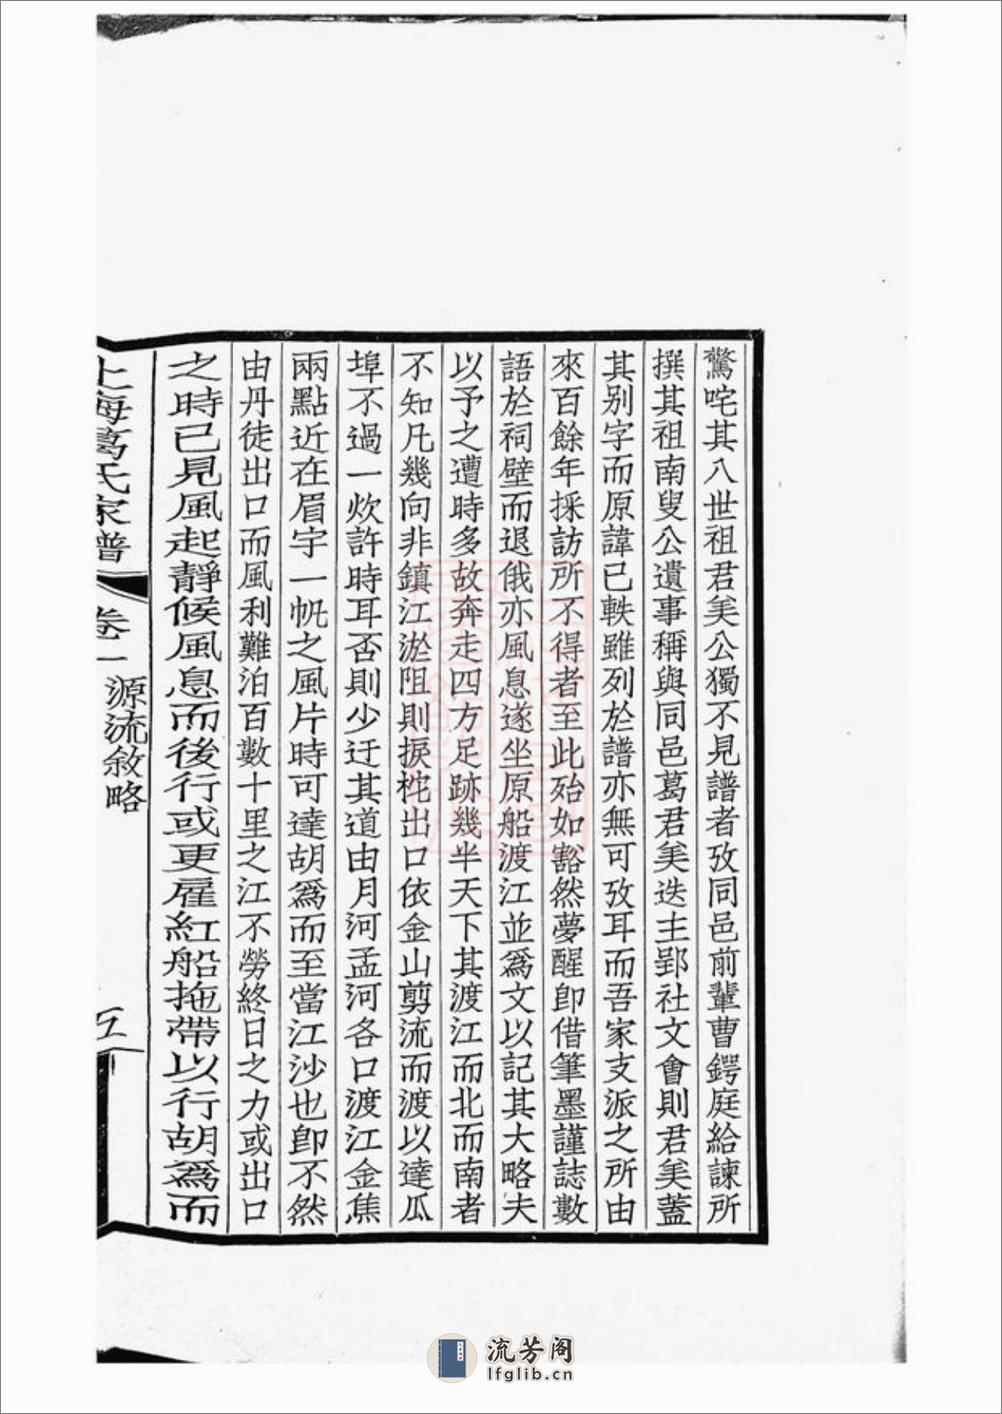 驚咤其八世祖君矣公獨不見譜者攷同邑前輩曹鍔庭給諫所
撰其祖南叟公遺事稱與同邑葛君矣迭主郢社文會則君矣蓋
其别字而原諱已軼雖列於譜亦無可攷耳而吾家支派之所由
來百餘年採訪所不得者至此殆如豁然夢醒卽借筆墨謹誌數
語於祠壁而退俄亦風息遂坐原船渡江並爲文以記其大略夫
以予之遭時多故奔走四方足跡幾半天下其渡江而北而南者
不知凡幾向非鎮江淤阻則捩柁出口依金山剪流而渡以達瓜
埠不過一炊許時耳否則少迂其道由月河孟河各口渡江金焦
兩點近在眉宇一帆之風片時可達胡爲而至當江沙也卽不然
由丹徒出口而風利難泊百數十里之江不勞終日之力或出口
之時已見風起靜候風息而後行或更雇紅船拖帶以行胡爲而
上海葛氏家譜 卷一 源流敘略 五
流芳阁
lfglib.cn